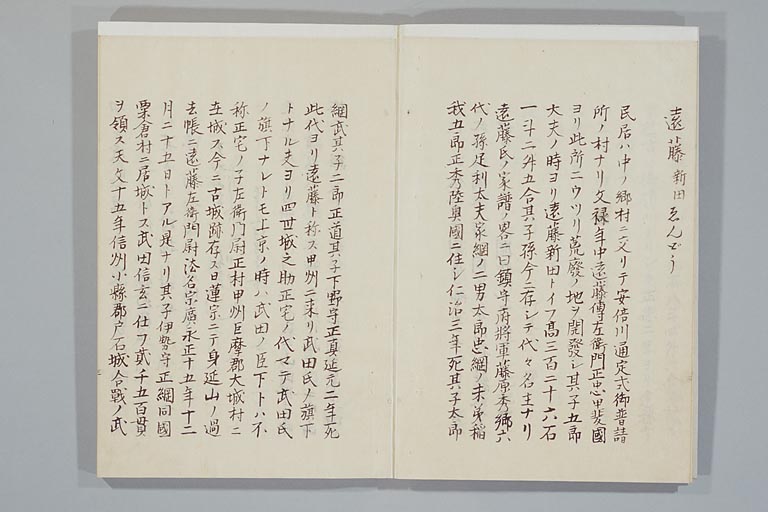 遠藤新田 ゑんどう
民居ハ中ノ郷村ニ交リテ安倍川通定式御普請
所ノ村ナリ文禄年中遠藤傳左衛門正忠甲斐國
ヨリ此所ニウツリ荒廢ノ地ヲ開發シ其子五郎
大夫ノ時ヨリ遠藤新田トイフ高三百二十六石
一斗二升五合其子孫今ニ存シテ代々名主ナリ
遠藤氏ノ家譜ノ畧ニ曰鎮守府將軍藤原秀郷六
代ノ孫足利太夫家綱ノ二男太郎忠綱ノ末流稲
我五郎正秀陸奥國ニ住シ仁治三年死其子太郎
綱武其子二郎正道其子下野守正真延元二年死
此代ヨリ遠藤ト称ス甲州ニ来リ武田氏ノ旗下
トナル夫ヨリ四世城之助正宅ノ代マテ武田氏
ノ旗下ナレトモ上京ノ時ハ武田ノ臣下トハ不
称正宅ノ子左衛門尉正村甲州巨摩郡大城村ニ
在城ス今ニ古城跡存ス日蓮宗ニテ身延山ノ過
去帳ニ遠藤左衛門尉法名宗廣永正十五年十二
月二十五日トアル是ナリ其子伊勢守正綱同國
栗倉村ニ居城トス武田信玄ニ仕フ貳千五百貫
ヲ領ス天文十五年信州小縣郡戸石城合戰ノ武